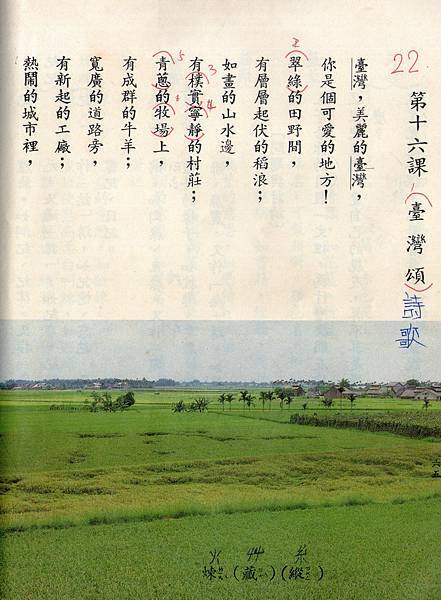 22.
第十六課 臺灣頌
詩歌
臺灣，美麗的臺灣，
你是個可愛的地方！
翠綠的田野間，
有層層起伏的稻浪；
如畫的山水邊，
有樸實寧靜的村莊；
青蔥的牧場上，
有成群的牛羊；
寬廣的道路旁，
有新起的工廠；
熱鬧的城市裡，
1
2
3
4
5
6
火 艸 糸
煉(藏)(縱)